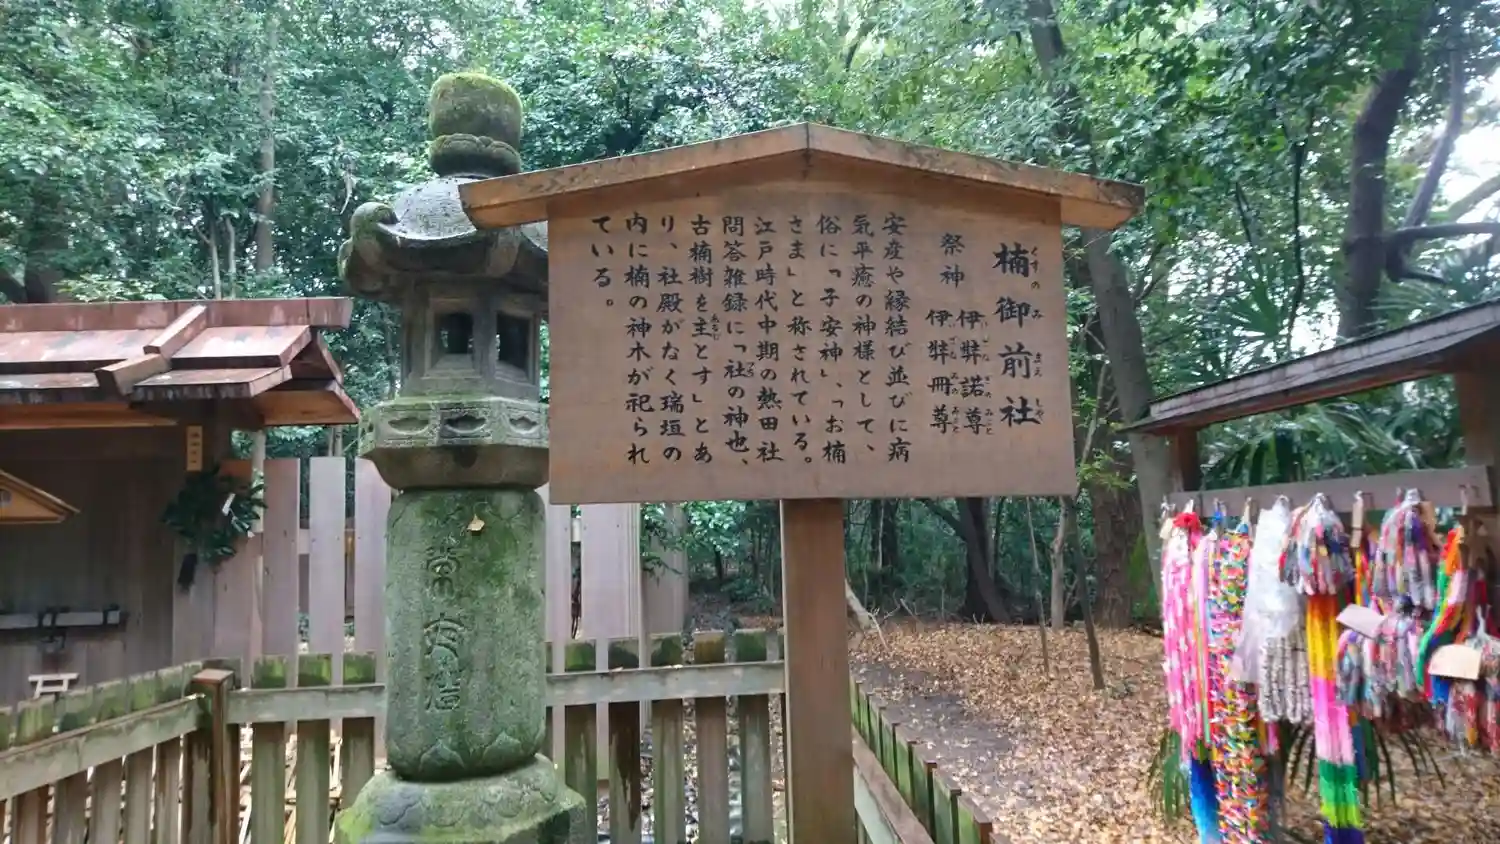 楠御前社
くすのみまえしや
祭神
伊弉諾尊
いざなぎのみこと
伊弉冊尊
いざなみのみこと
安産や縁結び並びに病
気平癒の神様として、
俗に「子安神」、「お楠
さま」と称されている。
江戸時代中期の熱田社
問答雑録に「社の神也、
古楠樹を主とす」とあ
り、社殿がなく瑞垣の
内に楠の神木が祀られ
ている。